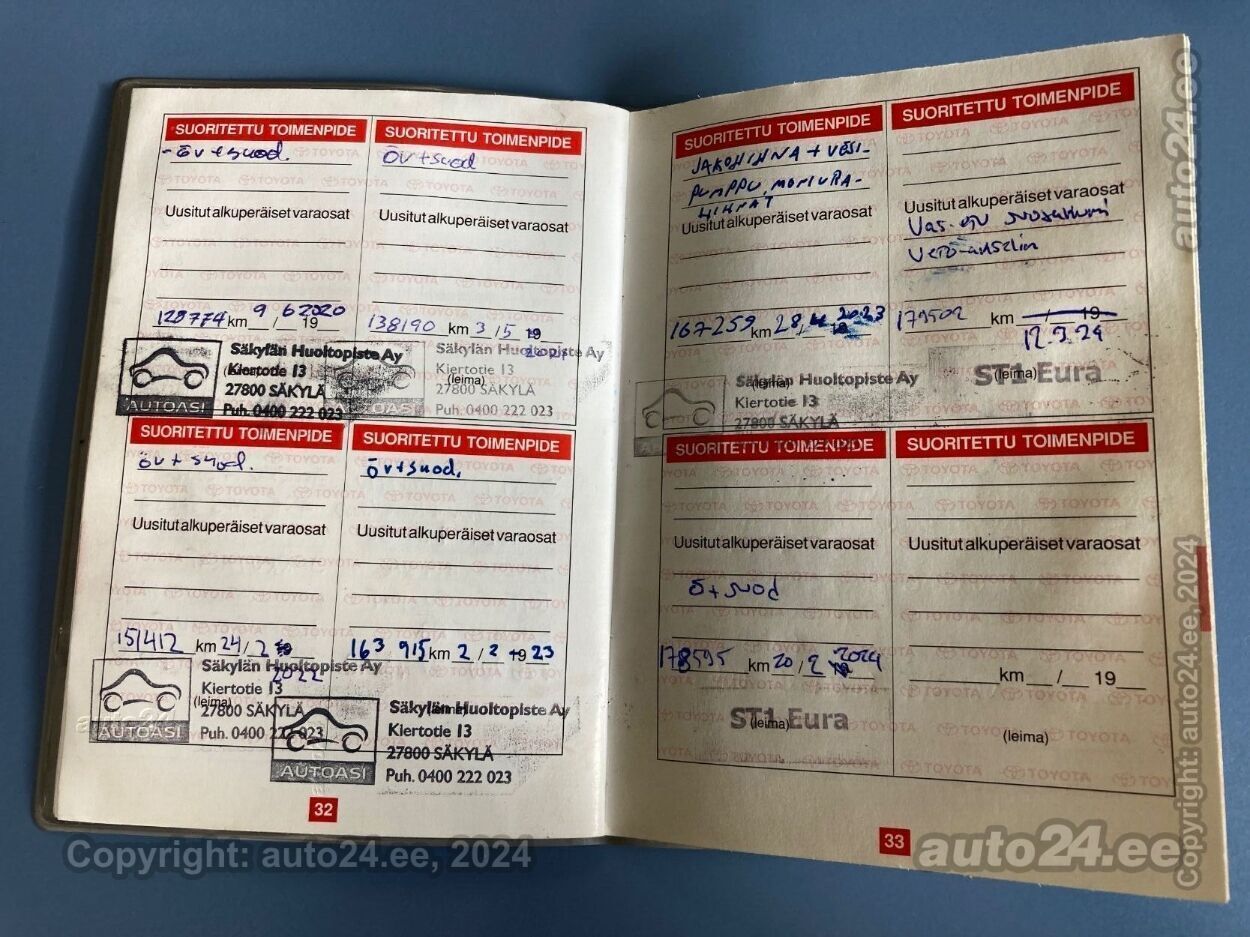 SUORITETTU TOIMENPIDE
- öv+suod.
Uusitut alkuperäiset varaosat
128774 km 9/6 2020 19
Säkylän Huoltopiste Ay
Kiertotie 13
27800 SÄKYLÄ
Puh. 0400 222 023
AUTOASI
SUORITETTU TOIMENPIDE
öv+suod
Uusitut alkuperäiset varaosat
138190 km 3/5 19
2021
Säkylän Huoltopiste Ay
Kiertotie 13
(leima)
27800 SÄKYLÄ
Puh. 0400 222 023
SUORITETTU TOIMENPIDE
öv+suod.
Uusitut alkuperäiset varaosat
151412 km 24/2 19
2022
Säkylän Huoltopiste Ay
Kiertotie 13
(leima)
27800 SÄKYLÄ
Puh. 0400 222 023
AUTOASI
SUORITETTU TOIMENPIDE
öv+suod.
Uusitut alkuperäiset varaosat
163 915 km 2/2 19 23
Säkylän Huoltopiste Ay
(leima)
Kiertotie 13
27800 SÄKYLÄ
Puh. 0400 222 023
AUTOASI
32
SUORITETTU TOIMENPIDE
JAKOHIHNA + VESI-
PUMPPU, MONIURA-
HIHNAT
Uusitut alkuperäiset varaosat
167259 km 28/ 2023
Säkylän Huoltopiste Ay
(leima)
Kiertotie 13
27800 SÄKYLÄ
SUORITETTU TOIMENPIDE
Uusitut alkuperäiset varaosat
Vas.
km / 19
24
ST1 Eura
(leima)
SUORITETTU TOIMENPIDE
Uusitut alkuperäiset varaosat
Ö+suod
178595 km 20/2 19 2024
ST1 Eura
(leima)
SUORITETTU TOIMENPIDE
Uusitut alkuperäiset varaosat
km / 19
(leima)
33
TOYOTA
Copyright: auto24.ee, 2024
auto24.ee
auto24.ee
Copyright: auto24.ee, 2024
auto24